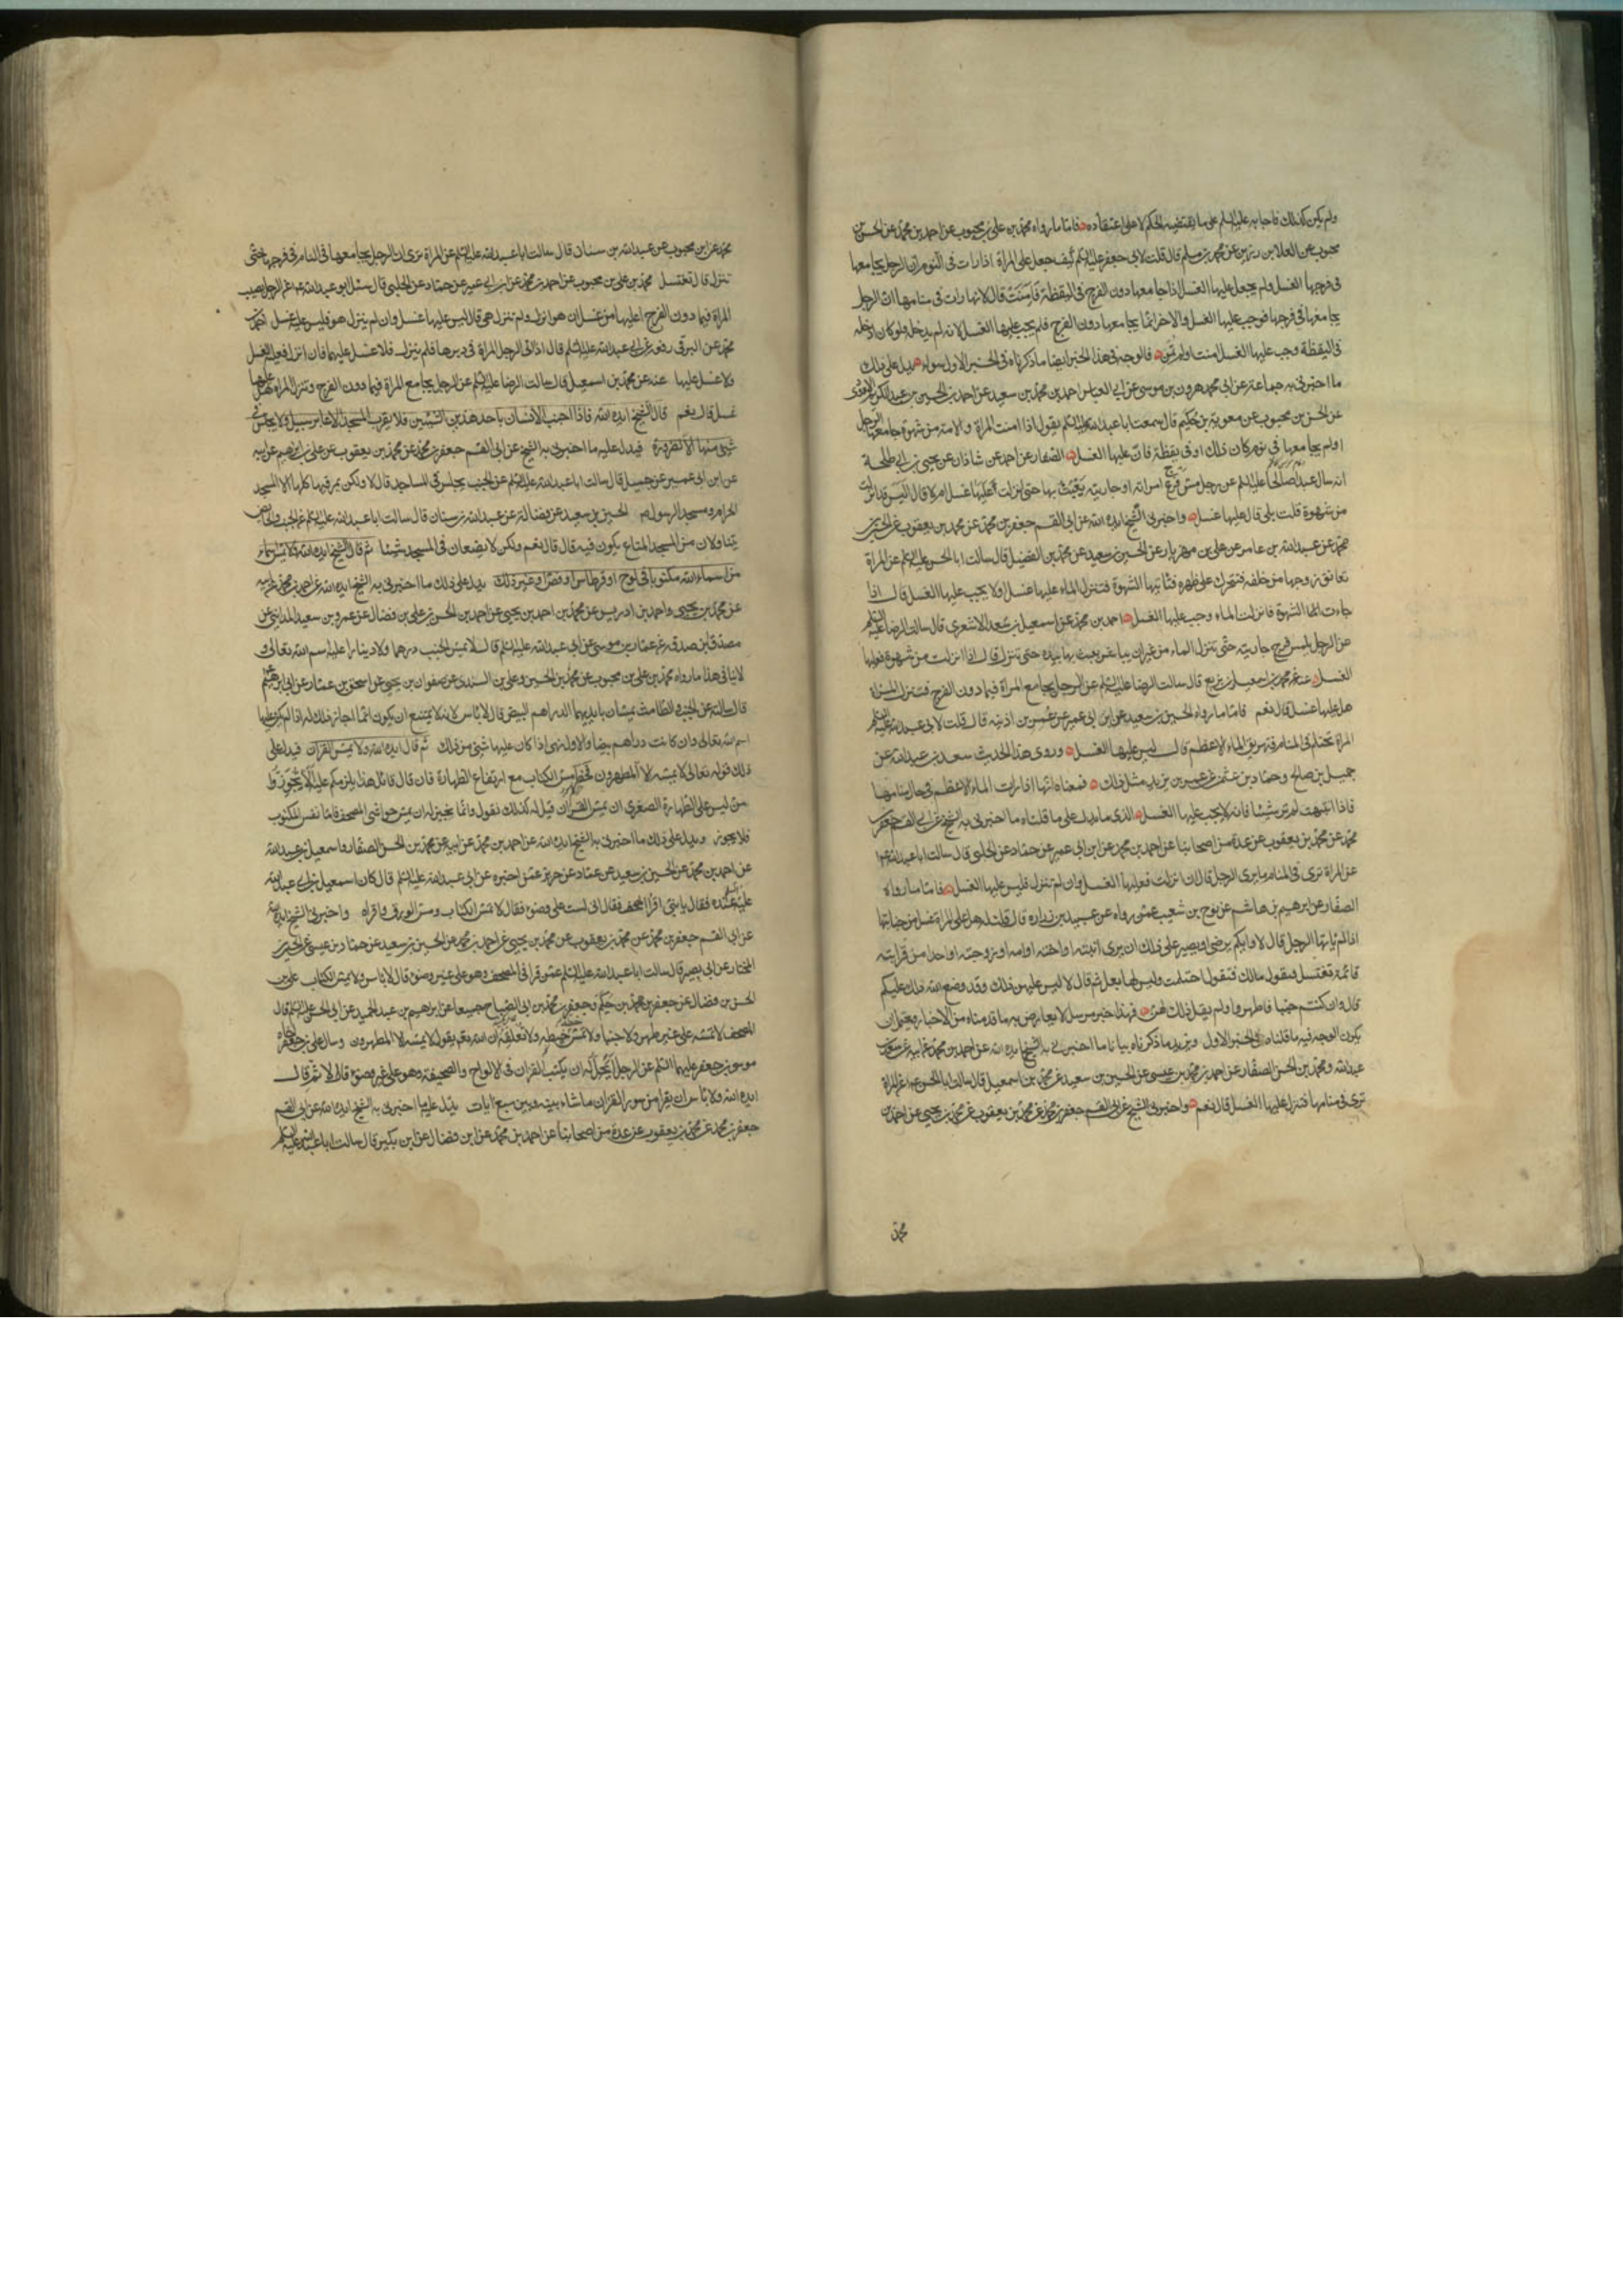 ولم يكن كذلك فاجابه عليه السلم على ما يقتضيه الحكم لا على اعتقاده فاما ما رواه محمد بن علي بن محبوب عن احمد بن محمد عن الحسن بن
محبوب عن العلا بن رزين عن محمد بن مسلم قال قلت لابي جعفر عليه السلم كيف جعل على المراة اذا رات في النوم ان الرجل يجامعها
في فرجها الغسل ولم يجعل عليها الغسل اذا جامعها دون الفرج في اليقظة فامنت قال لانها رات في منامها ان الرجل
يجامعها في فرجها فوجب عليها الغسل والاخر انما يجامعها دون الفرج فلم يجب عليها الغسل لانه لم يدخله ولو كان ادخله
في اليقظة وجب عليها الغسل امنت او لم تمن فالوجه في هذا الخبر ايضا ما ذكرناه في الخبر الاول سواء يدل على ذلك
ما اخبرني به جماعة عن ابي محمد هرون بن موسى عن ابي العباس احمد بن محمد بن سعيد عن احمد بن الحسين بن عبد الملك الاودي
عن الحسن بن محبوب عن معوية بن حكيم قال سمعت ابا عبد الله عليه السلم يقول اذا امنت المراة والامة من شهوة جامعها الرجل
او لم يجامعها في نوم كان ذلك او في يقظة فان عليها الغسل الصفار عن احمد عن شاذان عن يحيى بن ابي طلحة
انه سال عبدا صالحا عليه السلم عن رجل مس فرج امراته او جاريته يعبث بها حتى انزلت عليها غسل ام لا قال اليس قد انزلت
من شهوة قلت بلى قال عليها غسل واخبرني الشيخ ايده الله عن ابي القسم جعفر بن محمد عن محمد بن يعقوب عن الحسين بن
محمد عن عبد الله بن عامر عن علي بن مهزيار عن الحسين بن سعيد عن محمد بن الفضيل قال سالت ابا الحسن عليه السلم عن المراة
تعانق زوجها من خلفه فتحرك على ظهره فتاتيها الشهوة فتنزل الماء عليها غسل او لا يجب عليها الغسل قال اذا
جاءت لها الشهوة فانزلت الماء وجب عليها الغسل احمد بن محمد عن اسمعيل بن سعد الاشعري قال سالت الرضا عليه السلم
عن الرجل يلمس فرج جاريته حتى تنزل الماء من غير ان يباشر يعبث بها بيده حتى تنزل قال اذا انزلت من شهوة فعليها
الغسل عنه عن محمد بن اسمعيل بن بزيع قال سالت الرضا عليه السلم عن الرجل يجامع المراة فيما دون الفرج فتنزل المراة
هل عليها غسل قال نعم فاما ما رواه الحسين بن سعيد عن ابن ابي عمير عن عمر بن اذينه قال قلت لابي عبد الله عليه السلم
المراة تحتلم في المنام فتهريق الماء الاعظم قال ليس عليها الغسل وروى هذا الحديث سعد بن عبد الله عن
جميل بن صالح وحماد بن عثمن عن عمر بن يزيد مثل ذلك فمعناه انها اذا رات الماء الاعظم في حال منامها
فاذا انتبهت لم تر شيئا فانه لا يجب عليها الغسل الذي يدل على ما قلناه ما اخبرني به الشيخ عن ابي القسم جعفر بن
محمد عن محمد بن يعقوب عن عدة من اصحابنا عن احمد بن محمد عن ابن ابي عمير عن حماد عن الحلبي قال سالت ابا عبد الله ع
عن المراة ترى في المنام ما يرى الرجل قال ان انزلت فعليها الغسل وان لم تنزل فليس عليها الغسل فاما ما رواه
الصفار عن ابرهيم بن هاشم عن نوح بن شعيب عمن رواه عن عبيد بن زراره قال قلت له هل على المراة غسل من جنابتها
اذا لم ياتها الرجل قال لا وايكم يرضى او يصبر على ذلك ان يرى ابنته او اخته او امه او زوجته او احدا من قرابته
قائمة تغتسل فيقول مالك فتقول احتلمت وليس لها بعل ثم قال لا ليس عليهن ذلك وقد وضع الله ذلك عليكم
قال وان كنتم جنبا فاطهروا ولم يقل ذلك لهن فهذا خبر مرسل لا يعارض به ما قدمناه من الاخبار ويحتمل ان
يكون الوجه فيه ما قلناه في الخبر الاول ويزيد ما ذكرناه بيانا ما اخبرني به الشيخ ايده الله عن احمد بن محمد عن ابيه عن سعد بن
عبد الله ومحمد بن الحسن الصفار عن احمد بن محمد بن عيسى عن الحسين بن سعيد عن محمد بن اسمعيل قال سالت ابا الحسن ع عن المراة
ترى في منامها فتنزل عليها الغسل قال نعم واخبرني الشيخ عن ابي القسم جعفر بن محمد عن محمد بن يعقوب عن محمد بن يحيى عن احمد بن
محمد عن
محمد عن ابن محبوب عن عبد الله بن سنان قال سالت ابا عبد الله عليه السلم عن المراة ترى ان الرجل يجامعها في المنام في فرجها حتى
تنزل قال تغتسل محمد بن علي بن محبوب عن احمد بن محمد عن ابن ابي عمير عن حماد عن الحلبي قال سئل ابو عبد الله ع عن الرجل يصيب
المراة فيما دون الفرج اعليها من غسل ان هو انزل ولم تنزل هي قال ليس عليها غسل وان لم ينزل هو فليس عليه غسل احمد بن
محمد عن البرقي رفعه عن ابي عبد الله عليه السلم قال اذا اتى الرجل المراة في دبرها فلم ينزل فلا غسل عليهما فان انزل فعليه الغسل
ولا غسل عليها عنه عن محمد بن اسمعيل قال سالت الرضا عليه السلم عن الرجل يجامع المراة فيما دون الفرج وتنزل المراة هل عليها
غسل قال نعم قال الشيخ ايده الله فاذا اجنب الانسان باحد هذين الشيئين فلا يقرب المسجد الا عابر سبيل ولا يجلس في
شيء منها الا لضرورة فيدل عليه ما اخبرني به الشيخ عن ابي القسم جعفر بن محمد عن محمد بن يعقوب عن علي بن ابرهيم عن ابيه
عن ابن ابي عمير عن جميل قال سالت ابا عبد الله عليه السلم عن الجنب يجلس في المساجد قال لا ولكن يمر فيها كلها الا المسجد
الحرام ومسجد الرسول ص الحسين بن سعيد عن فضالة عن عبد الله بن سنان قال سالت ابا عبد الله عليه السلم عن الجنب والحائض
يتناولان من المسجد المتاع يكون فيه قال قال نعم ولكن لا يضعان في المسجد شيئا ثم قال الشيخ ايده الله ولا يمس اسما
من اسماء الله مكتوبا في لوح او قرطاس او فص او غير ذلك يدل على ذلك ما اخبرني به الشيخ ايده الله عن احمد بن محمد عن ابيه
عن محمد بن يحيى واحمد بن ادريس عن محمد بن احمد بن يحيى عن احمد بن الحسن بن علي بن فضال عن عمرو بن سعيد المدايني عن
مصدق بن صدقه عن عمار بن موسى عن ابي عبد الله عليه السلم قال لا يمس الجنب درهما ولا دينارا عليه اسم الله تعالى و
لا ينافي هذا ما رواه محمد بن علي بن محبوب عن محمد بن الحسين وعلي بن السندي عن صفوان بن يحيى عن اسحق بن عمار عن ابي ابرهيم
قال سالته عن الجنب والطامث يمسان بايديهما الدراهم البيض قال لا باس لانه لا يمتنع ان يكون انما اجاز ذلك له اذا لم يكن عليها
اسم الله تعالى وان كانت دراهم بيضا والاول نهي اذا كان عليها شيء من ذلك ثم قال ايده الله ولا يمس القران فيدل على
ذلك قوله تعالى لا يمسه الا المطهرون فحظر مس الكتاب مع ارتفاع الطهارة فان قال قائل هذا يلزمكم عليه الا تجوزوا
من ليس على الطهارة الصغرى ان يمس القران قيل له كذلك نقول وانما نجيز له ان يمس حواشي المصحف فاما نفس المكتوب
فلا يجوز ويدل على ذلك ما اخبرني به الشيخ ايده الله عن احمد بن محمد عن ابيه عن محمد بن الحسن الصفار واسمعيل بن عبد الله
عن احمد بن محمد عن الحسين بن سعيد عن حماد عن حريز عمن اخبره عن ابي عبد الله عليه السلم قال كان اسمعيل بن ابي عبد الله
عليه السلم عنده فقال يا بني اقرا المصحف فقال اني لست على وضوء فقال لا تمس الكتاب ومس الورق واقراه واخبرني الشيخ ايده الله
عن ابي القسم جعفر بن محمد عن محمد بن يعقوب عن محمد بن يحيى عن احمد بن محمد عن الحسين بن سعيد عن حماد بن عيسى عن الحسين بن
المختار عن ابي بصير قال سالت ابا عبد الله عليه السلم عمن قرا في المصحف وهو على غير وضوء قال لا باس ولا يمس الكتاب علي بن
الحسن بن فضال عن جعفر بن محمد بن حكيم وجعفر بن محمد بن ابي الصباح جميعا عن ابرهيم بن عبد الحميد عن ابي الحسن عليه السلم قال
المصحف لا تمسه على غير طهر ولا جنبا ولا تمس خيطه ولا تعلقه ان الله تع يقول لا يمسه الا المطهرون وسال علي بن جعفر اخاه
موسى بن جعفر عليهما السلم عن الرجل ايحل له ان يكتب القران في الالواح والصحيفة وهو على غير وضوء قال لا ثم قال
ايده الله ولا باس ان يقرا من سور القران ما شاء بينه وبين سبع ايات يدل عليه ما اخبرني به الشيخ ايده الله عن ابي القسم
جعفر بن محمد عن محمد بن يعقوب عن عدة من اصحابنا عن احمد بن محمد عن ابن فضال عن ابن بكير قال سالت ابا عبد الله عليه السلم